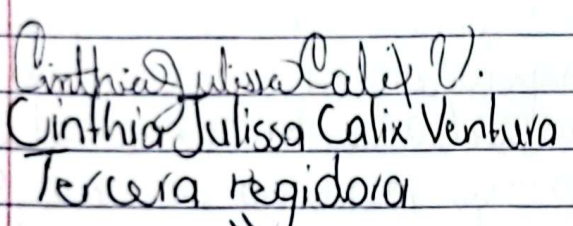 Cinthia Julissa Calix V.
Cinthia Julissa Calix Ventura
Tercera regidora